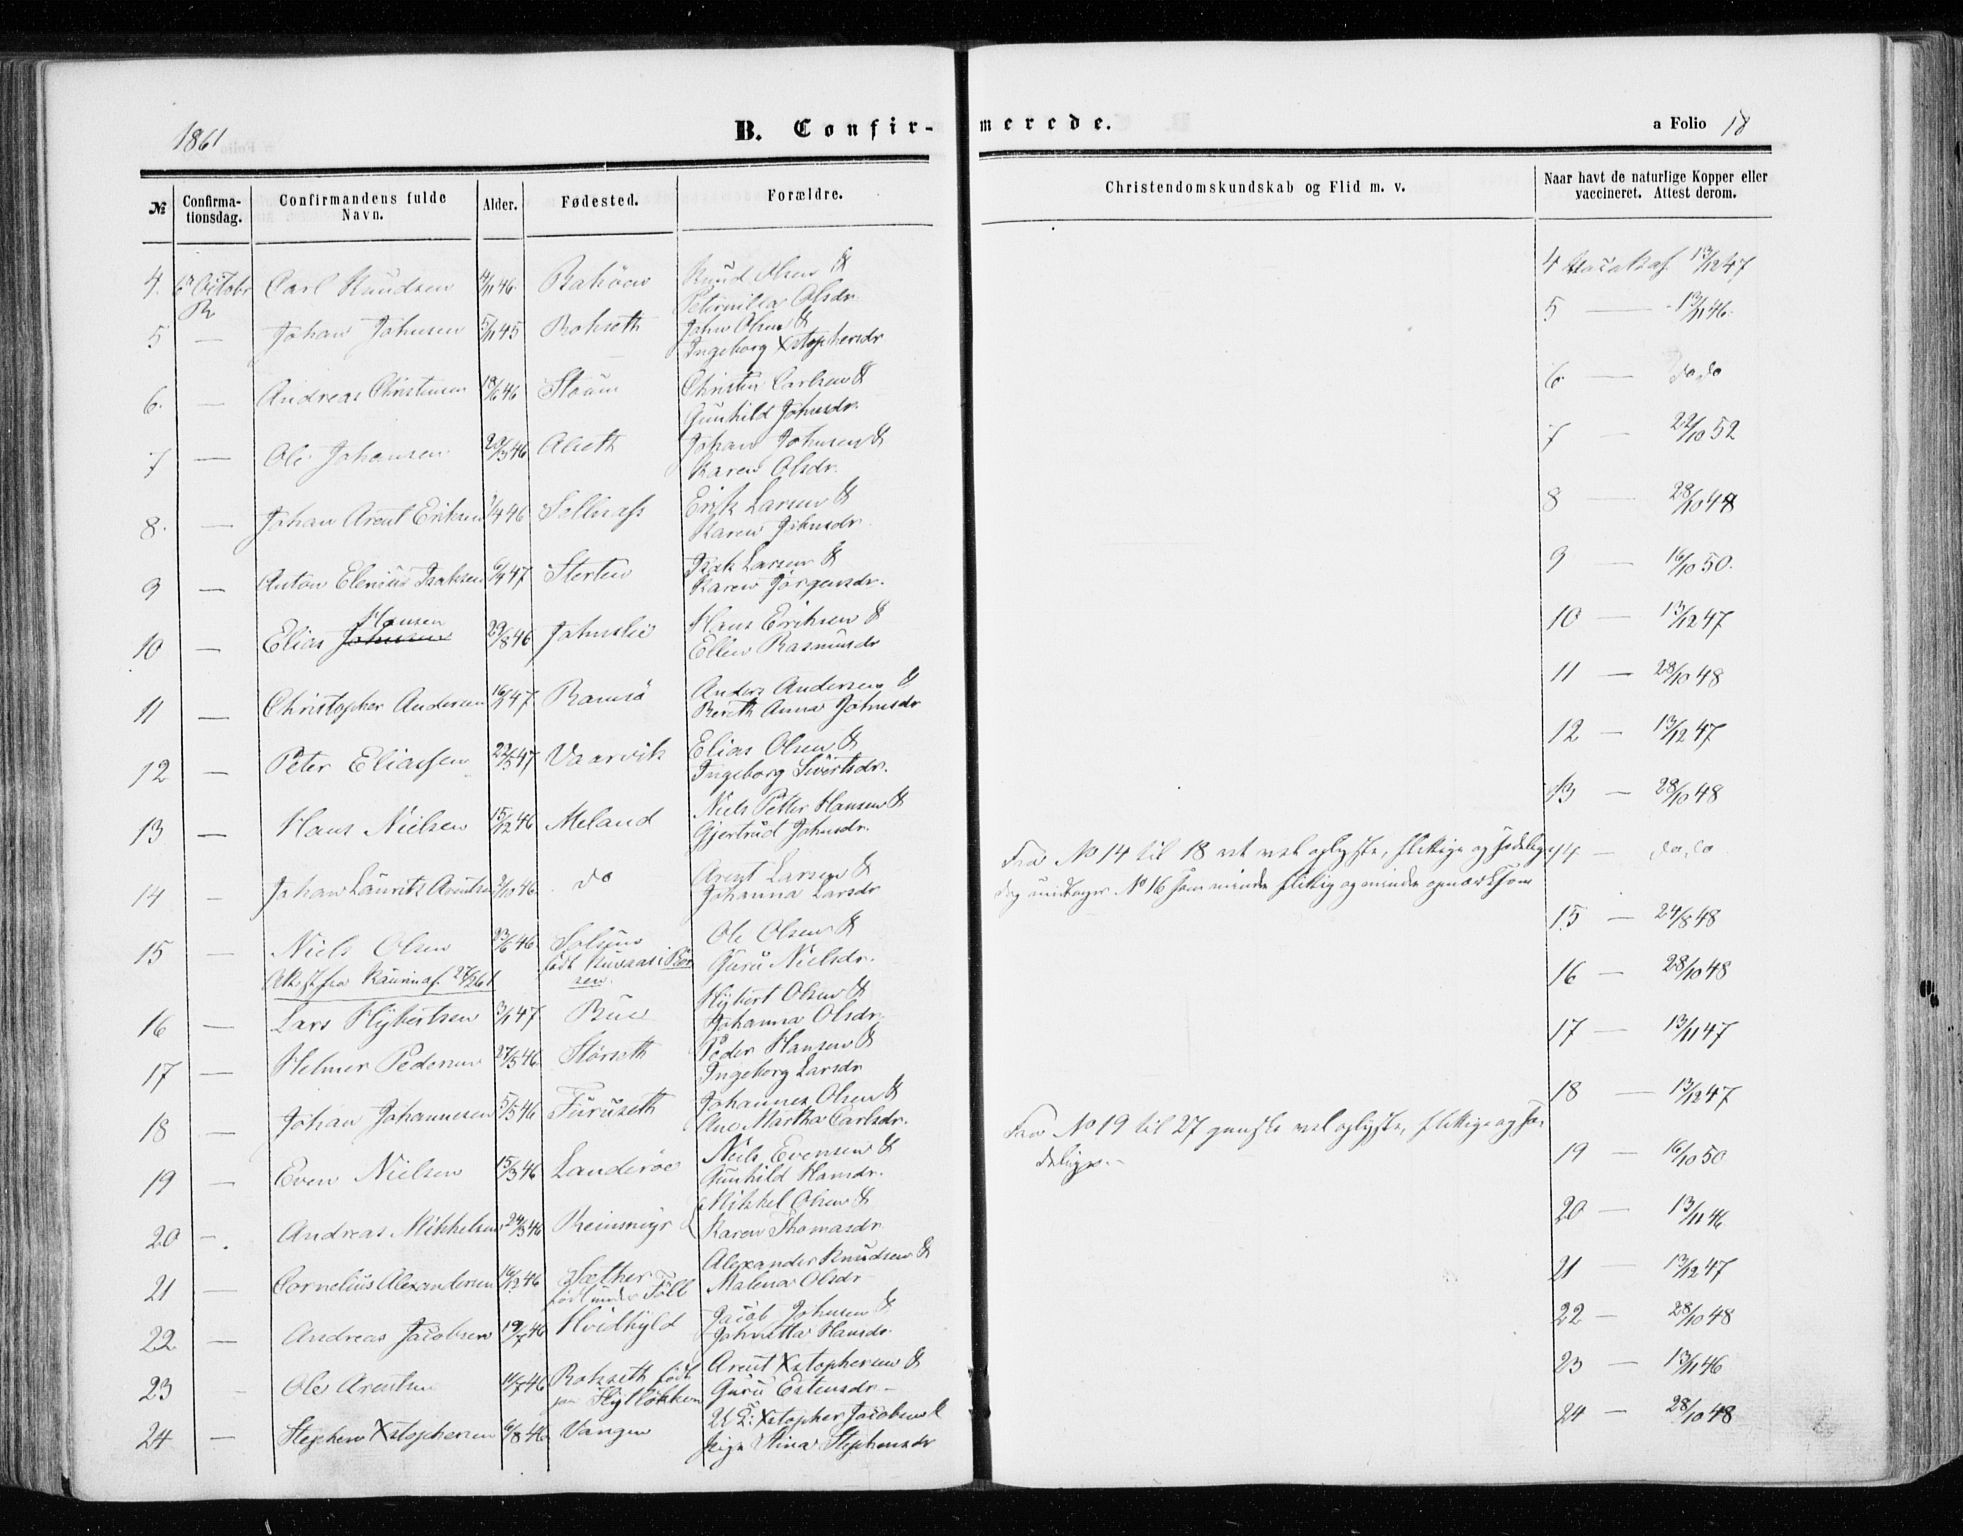 1861
B. Confirmerede.
a Folio 18
№ Confirmationsdag. Confirmandens fulde Navn. Alder. Fødested. Forældre. Christendomskundskab og Flid m. v. Naar havt de naturlige Kopper eller vaccineret. Attest derom.
4. 6 Octobr Carl Knudsen 4/11 46. Knud Olsen & 4 13/12 47
R Peternilla Olsdr.
5 — Johan Johnsen 5/11 45 Rokseth John Olsen & 5 — 13/11 46.
Ingeborg Xstophersdr
6. — Andreas Christensen 18/6 46 Strøm Christen Carlsen & 6 — do, do
Gunhild Johnsdr.
7 — Ole Johansen 20/3 46 Aliseth Johan Johnsen & 7 — 22/10 52
Karen Olsdr.
8. — Johan Arent Eriksen 46 Solhaug Erik Larsen & 8 — 28/10 48
Karen Johnsdr.
9 — Anton Elenius Isaksen 6/4 47 Sterten Isak Larsen & 9 — 16/10 50.
Karen Jørgensdr.
Hansen
10 — Elias Johnsen 29/8 46 Johnslie Hans Eriksen & 10 — 13/12 47
Ellen Rasmusdr
11 — Christopher Andersen 16/1 47. Ramsö Anders Andersen & 11 — 28/10 48
Bereth Anna Johnsdr
12 — Peter Eliassen 22/5 47 Vaarvik Elias Olsen & 12 — 13/12 47
Ingeborg Sivertsdr.
13 — Hans Nielsen 15/12 46 Meland Niels Petter Hansen & 13 — 28/10 48
Gjertrud Johnsdr.
14 — Johan Lauritz Arentsen 2/10 46. do Arent Larsen & Fra No 14 til 18 vel oplyste, flittige og sædelige 14 — do, do
Johanna Larsdr dog undtages No 16 som mindre flittig og mindre opmærksom
15 — Niels Olsen 23/6 46. Ole Olsen & 15 — 24/8 48
født i Børsen. Guru Nielsdr.
16 — Lars Hybertsen 3/1 47. Bue Hybert Olsen & 16 — 28/10 48
Johanna Olsdr.
17 — Helmer Pedersen 27/3 46. Störseth Peder Hansen & 17 — 13/11 47
Ingeborg Larsdr
18 — Johan Johannesen 5/5 46 Furuseth Johannes Olsen & 18 — 13/12 47
Ane Martha Carlsdr. Fra No 19 til 27 ganske vel oplyste, flittige og sæ-
19 — Even Nielsen 15/3 46 Landeröe Niels Evensen & delige.— 19 — 16/10 50
Gunhild Hansdr.
20 — Andreas Mikkelsen 24/3 46 Reinsmyr Mikkel Olsen & 20 — 13/11 46
Karen Thomasdr
21 — Cornelius Alexandersen 16/12 46 Sæther Alexander Knudsen & 21 — 13/12 47
født under Malena Olsdr
22 — Andreas Jacobsen 19/7 46 Hvidhyld Jacob Johnsen & 22 — 28/10 48
Johnetta Hansdr.
23 — Ole Arentsen 46 Rokseth født Arent Xstophersen & 23 — 13/11 46
Guru Estensdr —
24 — Stephen Xstophersen 6/8 46. Vangen Xstopher Jacobsen & 24 — 28/10 48
Pige Stina Stephensdr